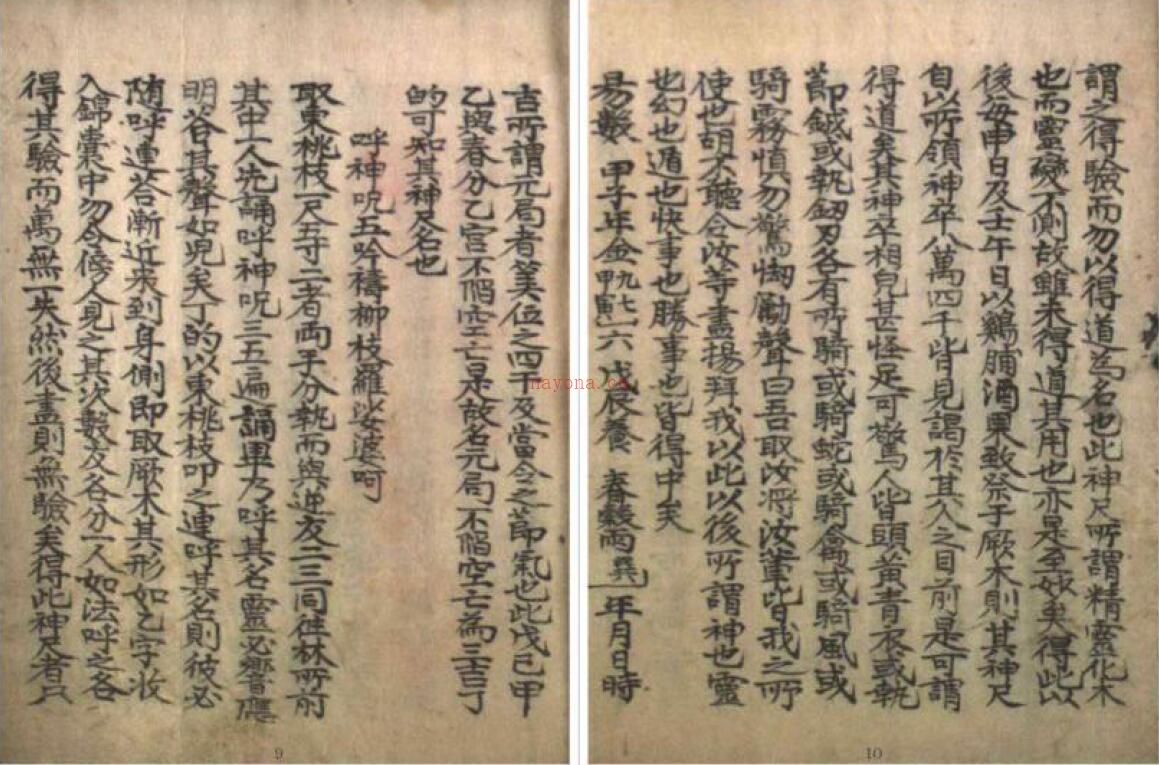 古所謂元局者美位之四干及當令之節氣也此戊己甲
乙與春分乙宮不陷空亡是故名元局不陷空亡而三吉丁
的可知其神尺名也
呼神呪五吟禱柳枝羅娑婆呵
取東桃枝一尺五寸二者両手分執而與逆友二三同徃林所前
其中一人先誦呼神呪三五遍誦畢乃呼其名靈必響應
明答其聲如児矣丁的以東桃枝叩之連呼其名則彼必
随呼連答漸近來到身側即取厥木其形如乙字收
入錦囊中勿令傍人見之其次數及各分一人如法呼之各
得其驗而萬無一失然後盡則無驗矣得此神尺者只
9
謂之得驗而勿以得道為名也此神尺所謂精靈化木
也而靈變不側故雖未得道其用也亦是至妙矣得此以
後每申日及壬午日以鷄脯酒果致祭于厥木則其神尺
自以所領神卒八萬四千皆見謁於其人之目前是可謂
得道矣其神卒相皃甚怪足可驚人皆頭黃青衣或執
節鉞或執劔刃各有所騎或騎蛇或騎禽或騎風或
騎霧慎勿驚㤼勵聲曰吾取汝將汝輩皆我之所
使也胡不聽令汝等盡揚拜我以此以後所謂神也靈
也幻也遁也快事也勝事也皆得中矣
易數 甲子年金九七一六 甲寅 戊辰養 春穀雨巽 年月日時
10
nayona.cn